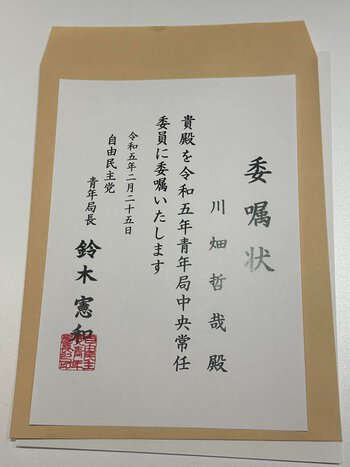 委嘱状
川畑哲哉殿
貴殿を令和五年青年局中央常任
委員に委嘱いたします
令和五年二月二十五日
自由民主党
青年局長 鈴木憲和